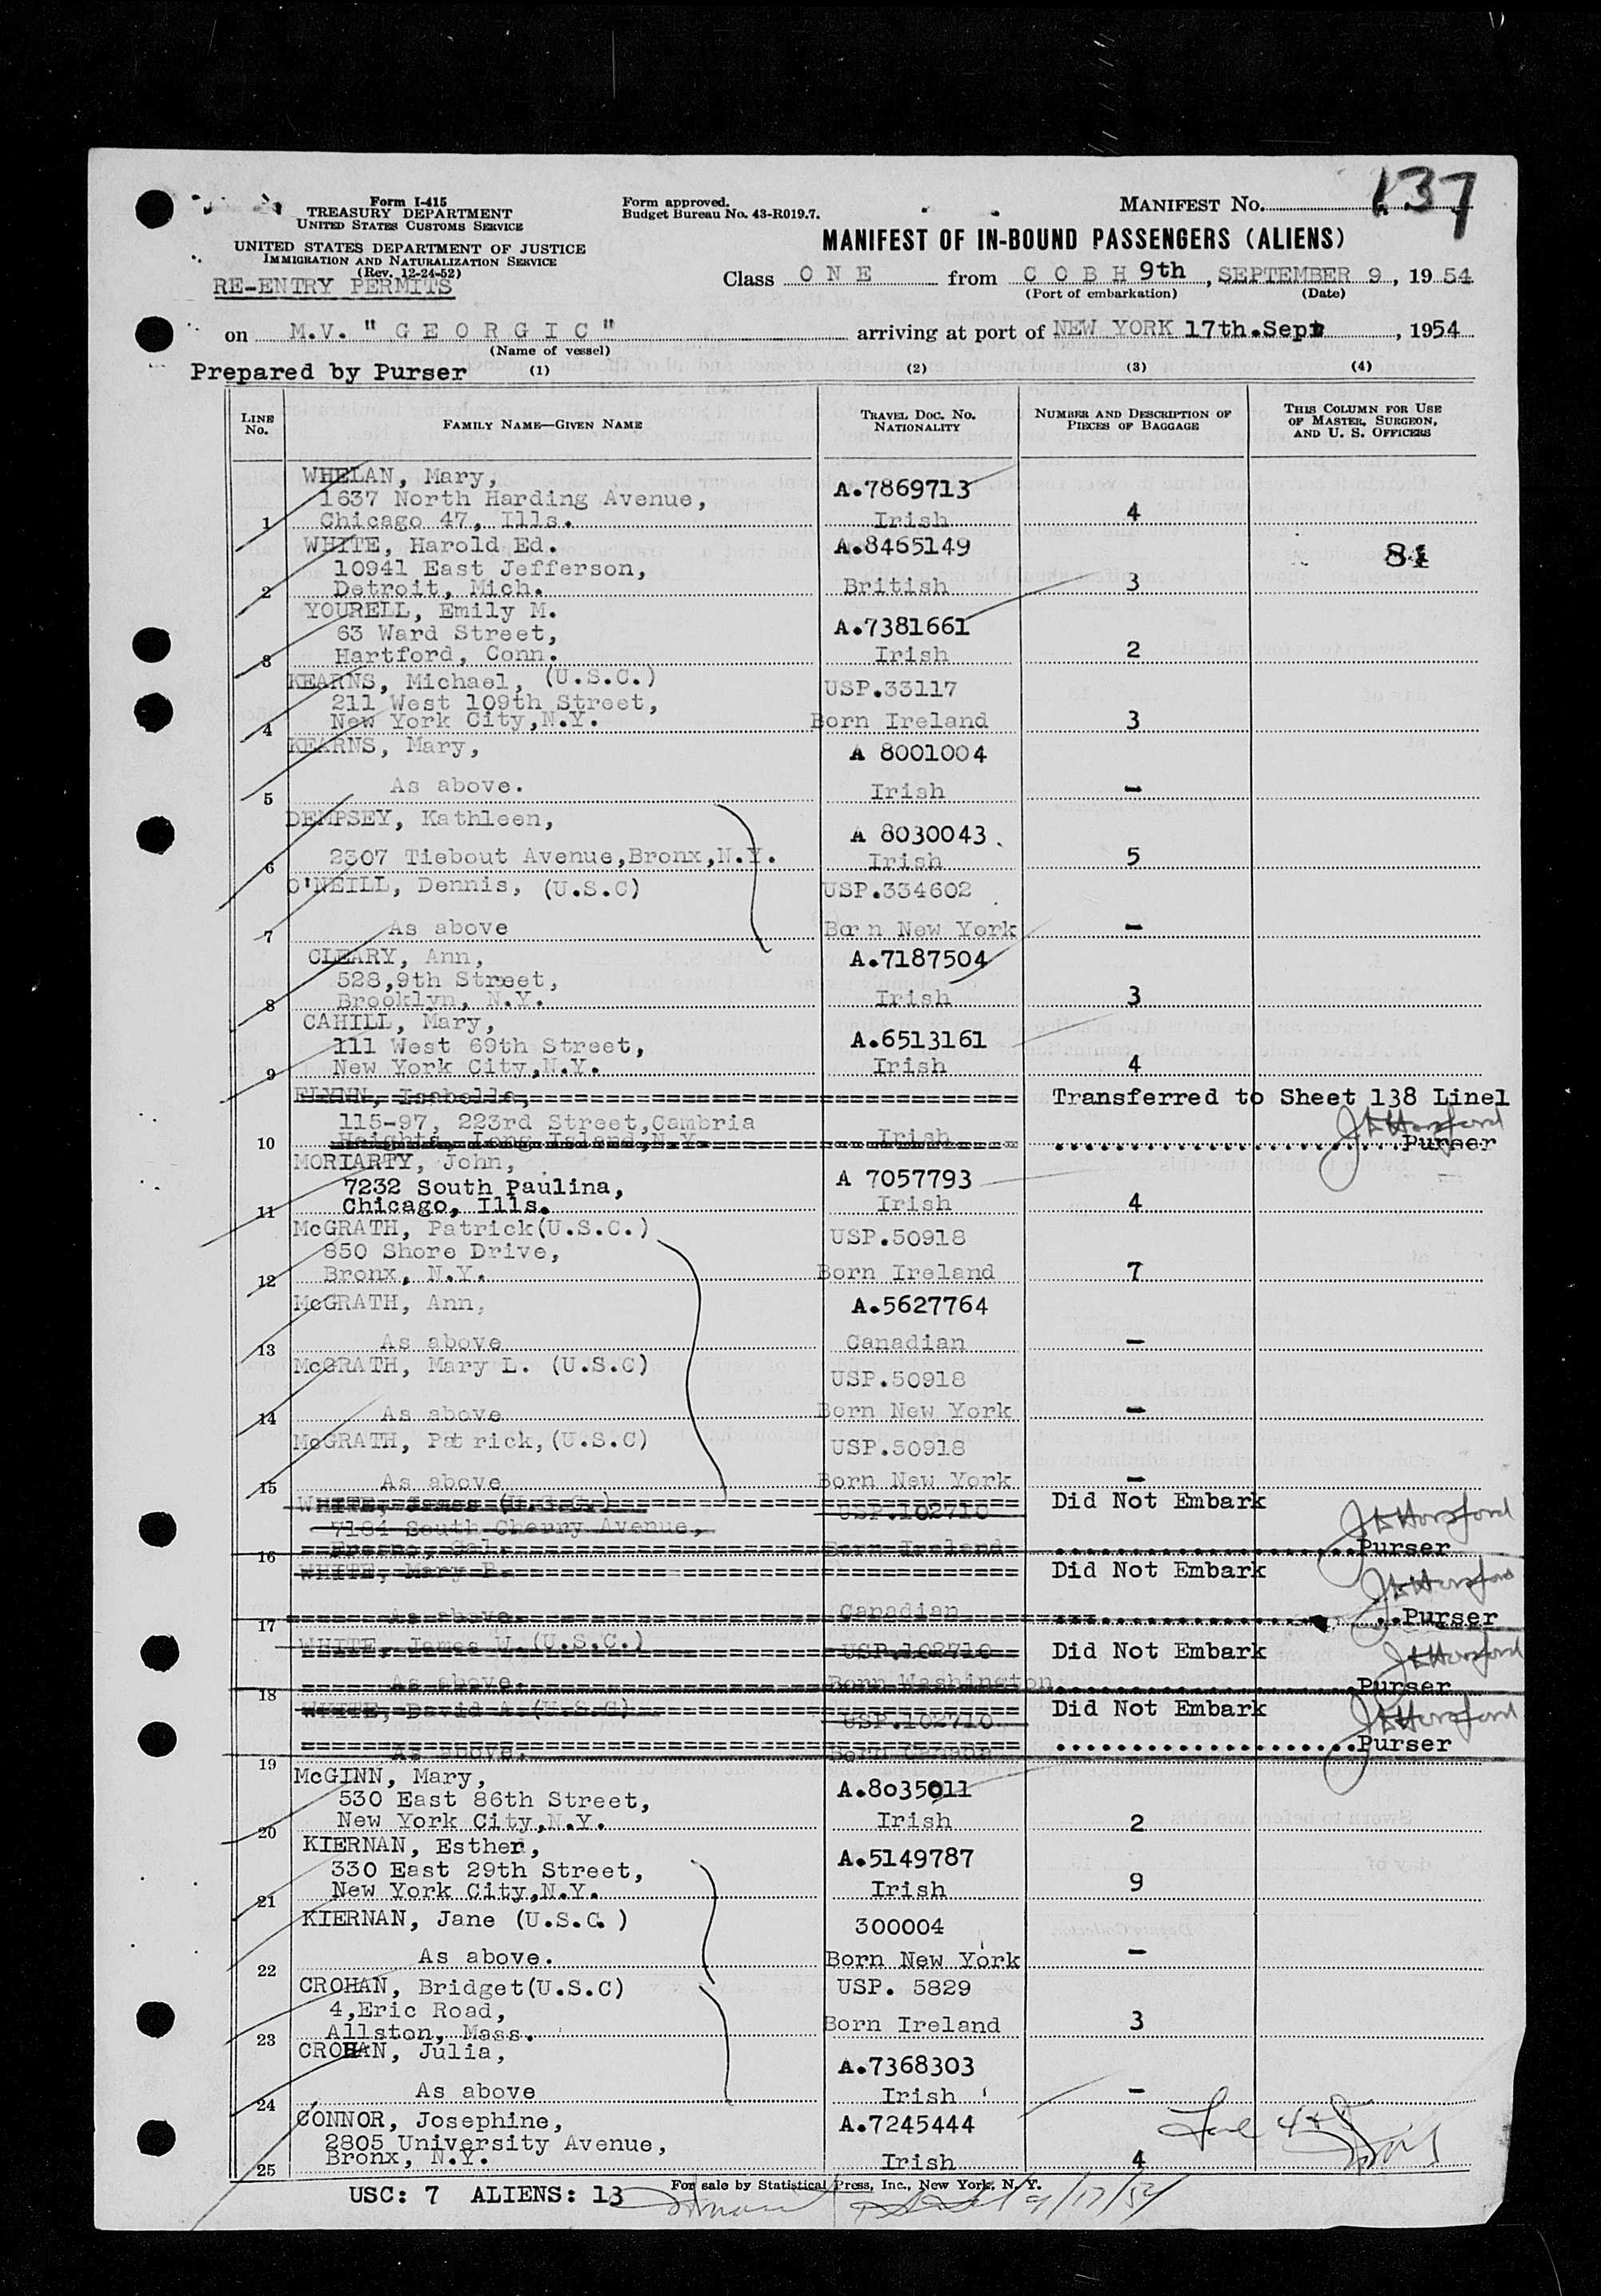 137
Form I-415
TREASURY DEPARTMENT
UNITED STATES CUSTOMS SERVICE
UNITED STATES DEPARTMENT OF JUSTICE
IMMIGRATION AND NATURALIZATION SERVICE
(Rev. 12-24-52)
RE-ENTRY PERMITS
Form approved.
Budget Bureau No. 43-R019.7.
MANIFEST NO.
MANIFEST OF IN-BOUND PASSENGERS (ALIENS)
Class O N E from C O B H 9th, SEPTEMBER 9, 19 54
(Port of embarkation) (Date)
on M.V. "G E O R G I C" arriving at port of NEW YORK 17th.Sept, 1954
(Name of vessel)
Prepared by Purser (1) (2) (3) (4)
LINE NO. FAMILY NAME—GIVEN NAME TRAVEL DOC. NO. NATIONALITY NUMBER AND DESCRIPTION OF PIECES OF BAGGAGE THIS COLUMN FOR USE OF MASTER, SURGEON, AND U. S. OFFICERS
WHELAN, Mary,
1637 North Harding Avenue, A.7869713
1 Chicago 47, Ills. Irish 4
WHITE, Harold Ed. A.8465149 81
10941 East Jefferson,
2 Detroit, Mich. British 3
YOURELL, Emily M.
63 Ward Street, A.7381661
3 Hartford, Conn. Irish 2
KEARNS, Michael, (U.S.C.) USP.33117
211 West 109th Street,
4 New York City,N.Y. Born Ireland 3
KEARNS, Mary, A 8001004
5 As above. Irish -
DEMPSEY, Kathleen, A 8030043
6 2307 Tiebout Avenue,Bronx,N.Y. Irish 5
O'NEILL, Dennis, (U.S.C) USP.334602
7 As above Born New York -
CLEARY, Ann, A.7187504
528,9th Street,
8 Brooklyn, N.Y. Irish 3
CAHILL, Mary,
111 West 69th Street, A.6513161
9 New York City,N.Y. Irish 4
FLYNN, Isabella, Transferred to Sheet 138 Line1
115-97, 223rd Street,Cambria
10 Heights, Long Island,N.Y. Irish Purser
MORIARTY, John,
7232 South Paulina, A 7057793
11 Chicago, Ills. Irish 4
McGRATH, Patrick(U.S.C.) USP.50918
850 Shore Drive,
12 Bronx, N.Y. Born Ireland 7
McGRATH, Ann, A.5627764
13 As above Canadian -
McGRATH, Mary L. (U.S.C) USP.50918
14 As above Born New York -
McGRATH, Patrick,(U.S.C) USP.50918
15 As above Born New York -
WHITE, James (U.S.C.) USP.102710 Did Not Embark
7184 South Cherry Avenue,
16 Fresno, Cal. Born Ireland Purser
WHITE, Mary P. Did Not Embark
17 As above. Canadian Purser
WHITE, James W.(U.S.C.) USP.102710 Did Not Embark
18 As above. Born Washington Purser
WHITE, David A.(U.S.C) USP.102710 Did Not Embark
19 As above. Born Canada Purser
McGINN, Mary,
530 East 86th Street, A.8035011
20 New York City,N.Y. Irish 2
KIERNAN, Esther,
330 East 29th Street, A.5149787
21 New York City,N.Y. Irish 9
KIERNAN, Jane (U.S.C.) 300004
22 As above. Born New York -
CROHAN, Bridget(U.S.C) USP. 5829
4,Eric Road,
23 Allston, Mass. Born Ireland 3
CROHAN, Julia, A.7368303
24 As above Irish -
CONNOR, Josephine, A.7245444
2805 University Avenue,
25 Bronx, N.Y. Irish 4
For sale by Statistical Press, Inc., New York, N. Y.
USC: 7 ALIENS: 13 9/17/54